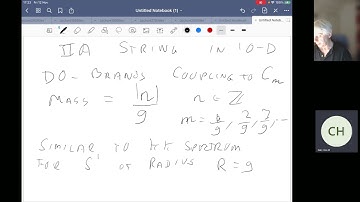 11:23 Fri 12 Nov
Untitled Notebook (1)
IIA STRING IN 10-D
D0-BRANDS COUPLING TO Cm
MASS = |n|/g n ∈ ℤ
m = 1/g, 2/g, 3/g, ...
SIMILAR TO KK SPECTRUM
FOR S¹ OF RADIUS R = g
CH